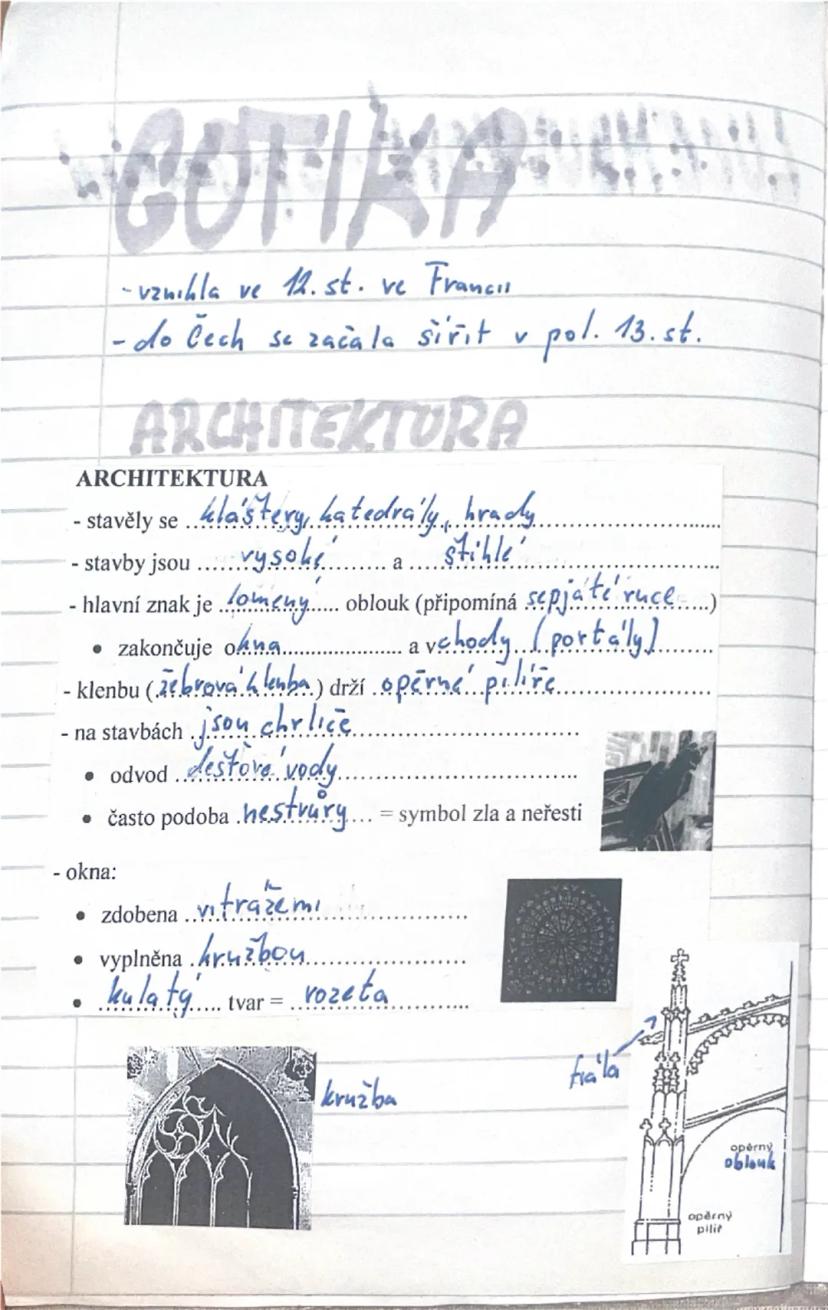 GOTIKA
- vznikla ve 12. st. ve Francii
- do Čech se začala šířit v pol. 13. st.
ARCHITEKTURA
ARCHITEKTURA
- stavěly se kláštery, katedrály, hrady
- stavby jsou vysoké a štíhlé
- hlavní znak je lomený oblouk (připomíná sepjaté ruce)
• zakončuje okna a vchody (portály)
- klenbu (žebrová klenba) drží opěrné pilíře
- na stavbách jsou chrliče
• odvod dešťové vody
• často podoba nestvůry = symbol zla a neřesti
- okna:
• zdobena vitrážemi
• vyplněna kružbou
• kulatý tvar = rozeta
kružba
fiála
opěrný
oblouk
opěrný
pilíř